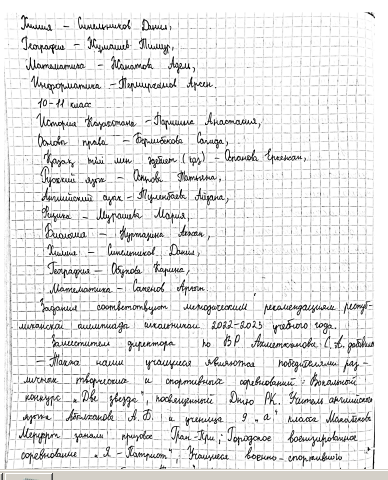 Химия – Синельников Данил,
География – Жумашев Тимур,
Математика – Жанатов Адем,
Информатика – Темиржанов Арсен.
10-11 класс
История Казахстана – Анастасия,
Основы права – Сагида,
Қазақ тілі мен әдебиет (қаз) – Оспанова Еркежан,
Русский язык – Татьяна,
Английский язык – Тулембаева Айдана,
Физика – Мурашева Мария,
Биология – Нуртазина Аежан,
Химия – Синельников Данил,
География – Обухова Карина,
Математика – Сапенов Арман
Задания соответствуют методическим рекомендациям респуб-
ликанской олимпиады школьников 2022-2023 учебного года.
Заместитель директора по ВР Ахметжанова С.К. добавила
– Также нами учащиеся являются победителями раз-
личных творческих и спортивных соревнований: Вокальный
конкурс „Две звезды", посвященный Дню РК. Учитель английского
языка А.Б. и ученица 9 „а" класса
Меруерт заняли призовое Гран-При; Городское военизированное
соревнование „Я – Патриот"; Учащиеся военно-спортивного